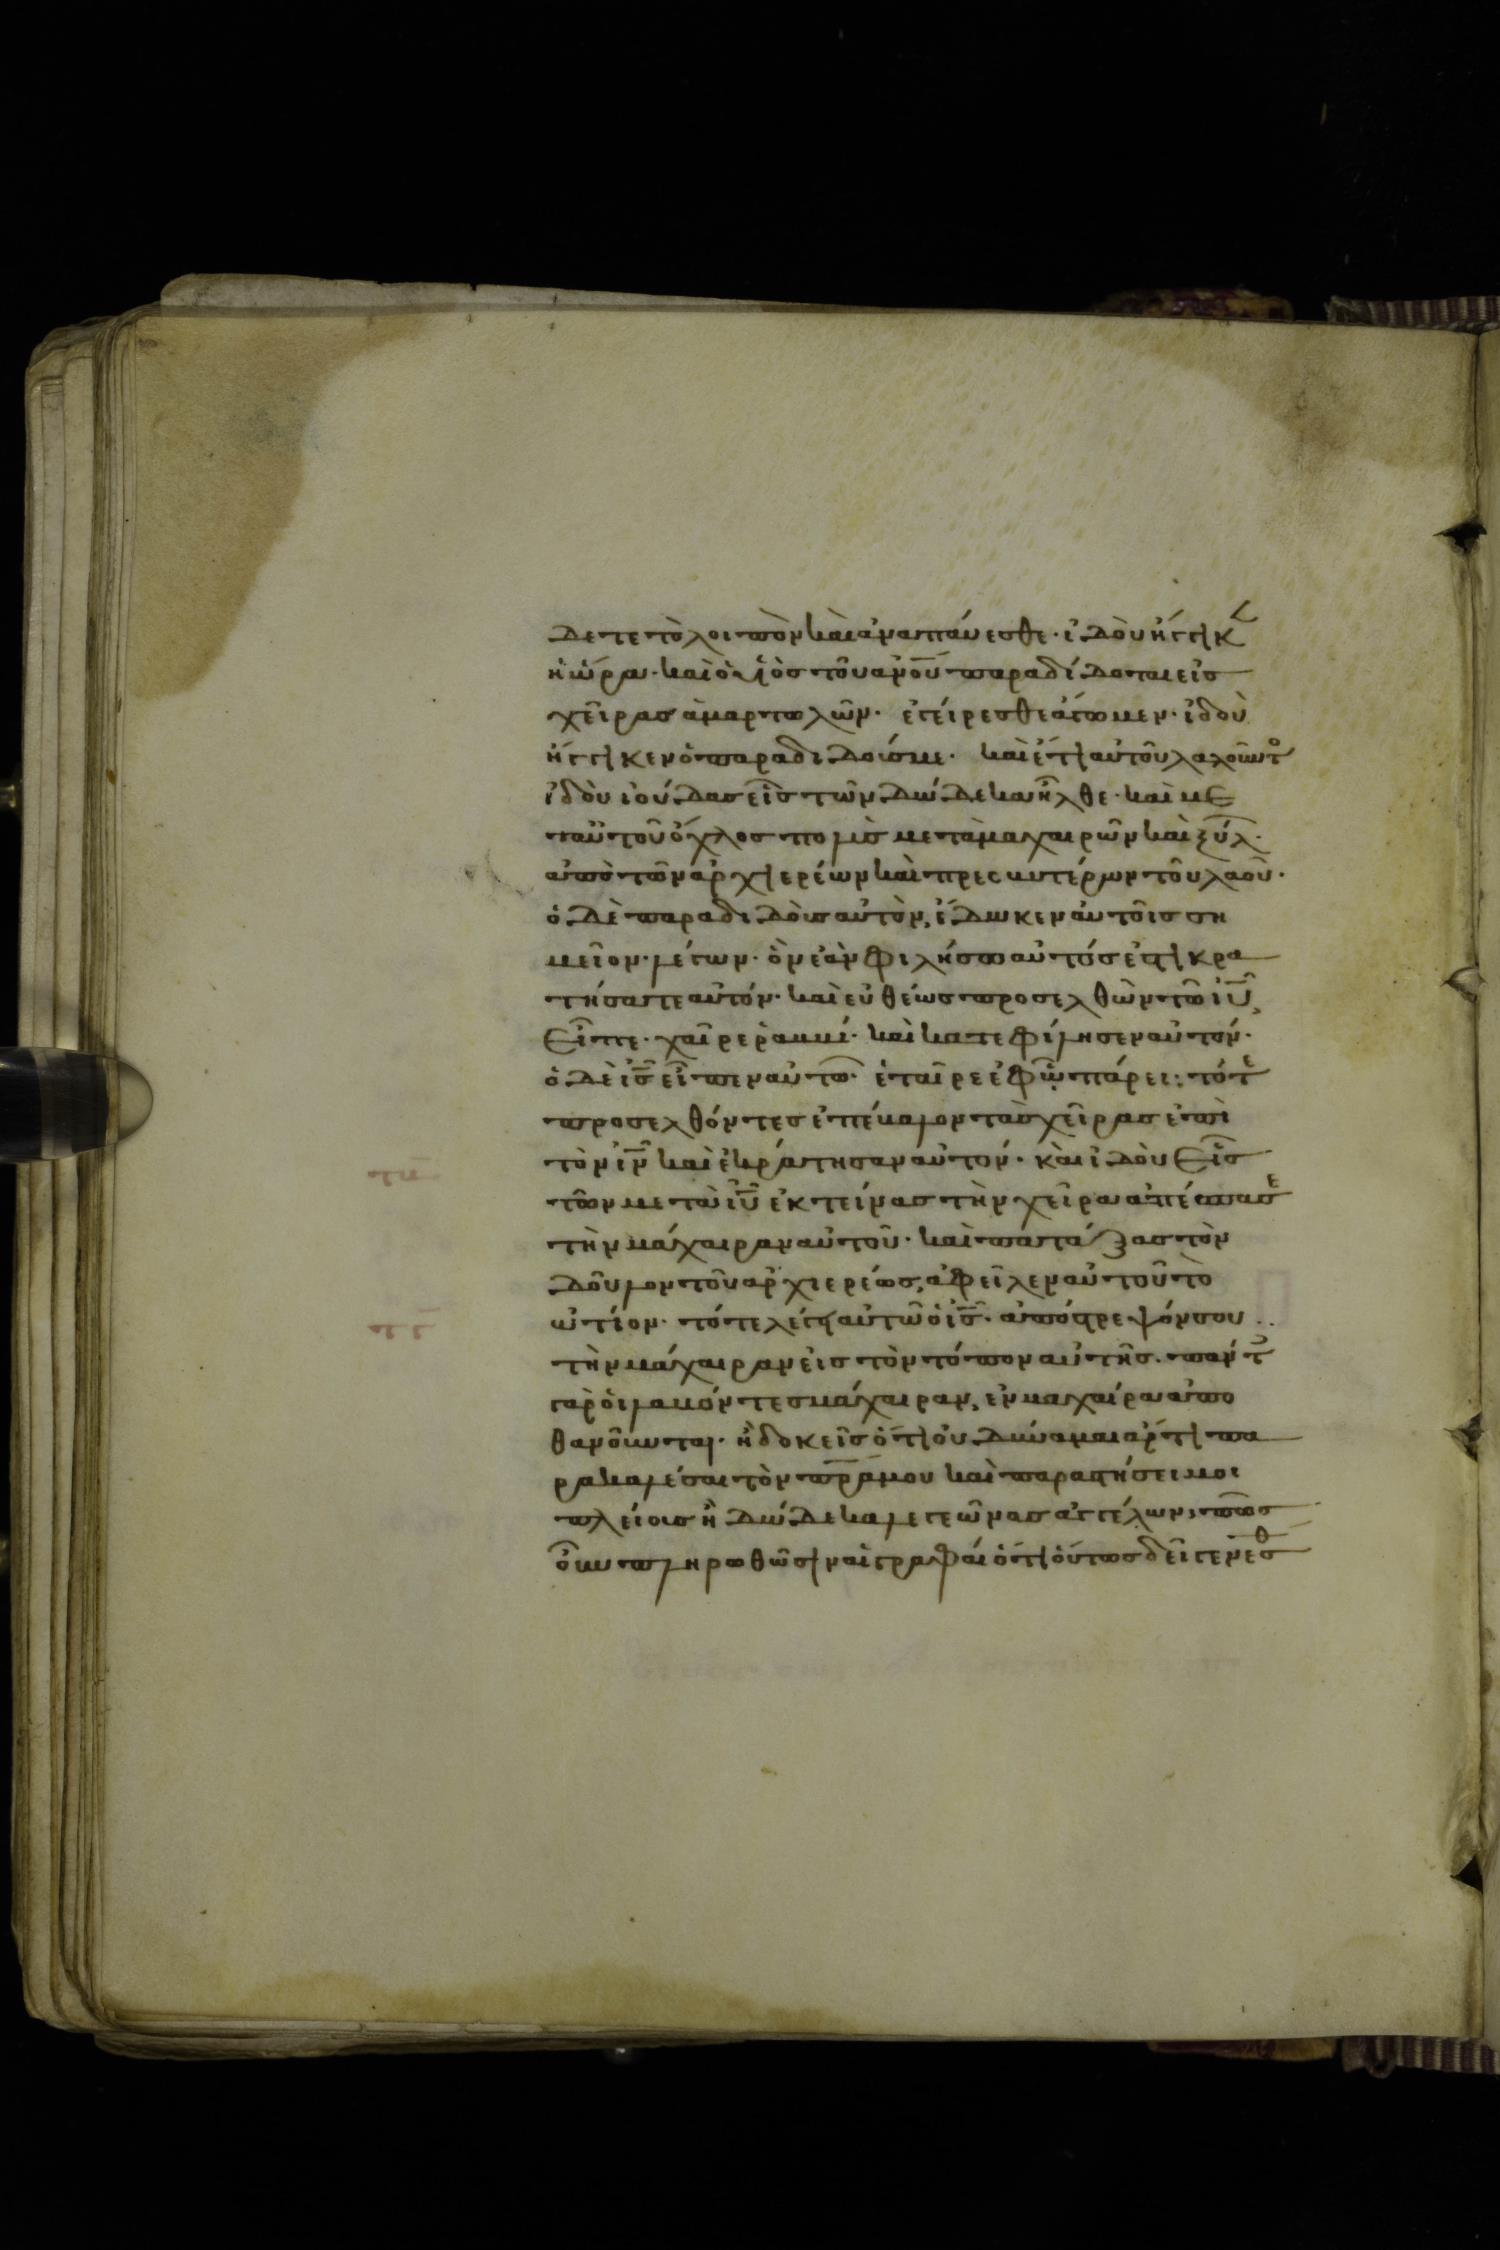 δετε τὸ λοιπὸν καὶ ἀναπαύεσθε· ἰδοὺ ἤγγικ
ἡ ὥρα· καὶ ὁ υἱὸς τοῦ ἀνου παραδίδοται εἰς
χεῖρας ἁμαρτωλῶν· ἐγείρεσθε ἄγωμεν· ἰδοὺ
ἤγγικεν ὁ παραδιδούς με· καὶ ἔτι αὐτοῦ λαλοῦντο
ἰδοὺ ἰούδας εἷς τῶν δώδεκα ἦλθε· καὶ με
τ αὐτοῦ ὄχλος πολὺς μετὰ μαχαιρῶν καὶ ξύλ·
ἀπὸ τῶν ἀρχιερέων καὶ πρεσβυτέρων τοῦ λαοῦ·
ὁ δὲ παραδιδοὺς αὐτὸν, ἔδωκεν αὐτοῖς ση
μεῖον· λέγων· ὃν ἐὰν φιλήσω αὐτός ἐστι κρα
τήσατε αὐτόν· καὶ εὐθέως προσελθὼν τῶ ιυ,
εἶπε· χαῖρε ῥαββί· καὶ κατεφίλησεν αὐτόν·
ὁ δὲ ις εἶπεν αὐτῶ· ἑταῖρε ἐφ ᾧ πάρει; τότε
προσελθόντες ἐπέβαλον τὰς χεῖρας ἐπὶ
τὸν ιν καὶ ἐκράτησαν αὐτόν· καὶ ἰδοὺ εἷς
τῶν μετὰ ιυ ἐκτείνας τὴν χεῖρα ἀπέσπασε
τὴν μάχαιραν αὐτοῦ· καὶ πατάξας τὸν
δοῦλον τοῦ ἀρχιερέως, ἀφεῖλεν αὐτοῦ τὸ
ὠτίον· τότε λέγει αὐτῶ ὁ ις· ἀπόστρεψόν σου
τὴν μάχαιραν εἰς τὸν τόπον αὐτῆς· πάντ
γὰρ οἱ λαβόντες μάχαιραν, ἐν μαχαίρα ἀπο
θανοῦνται· ἢ δοκεῖς ὅτι οὐ δύναμαι ἄρτι πα
ρακαλέσαι τὸν πρα μου καὶ παραστήσει μοι
πλείους ἢ δώδεκα λεγεῶνας ἀγγέλων; πῶς
οὖν πληρωθῶσιν αἱ γραφαί ὅτι οὕτως δεῖ γενέσθ